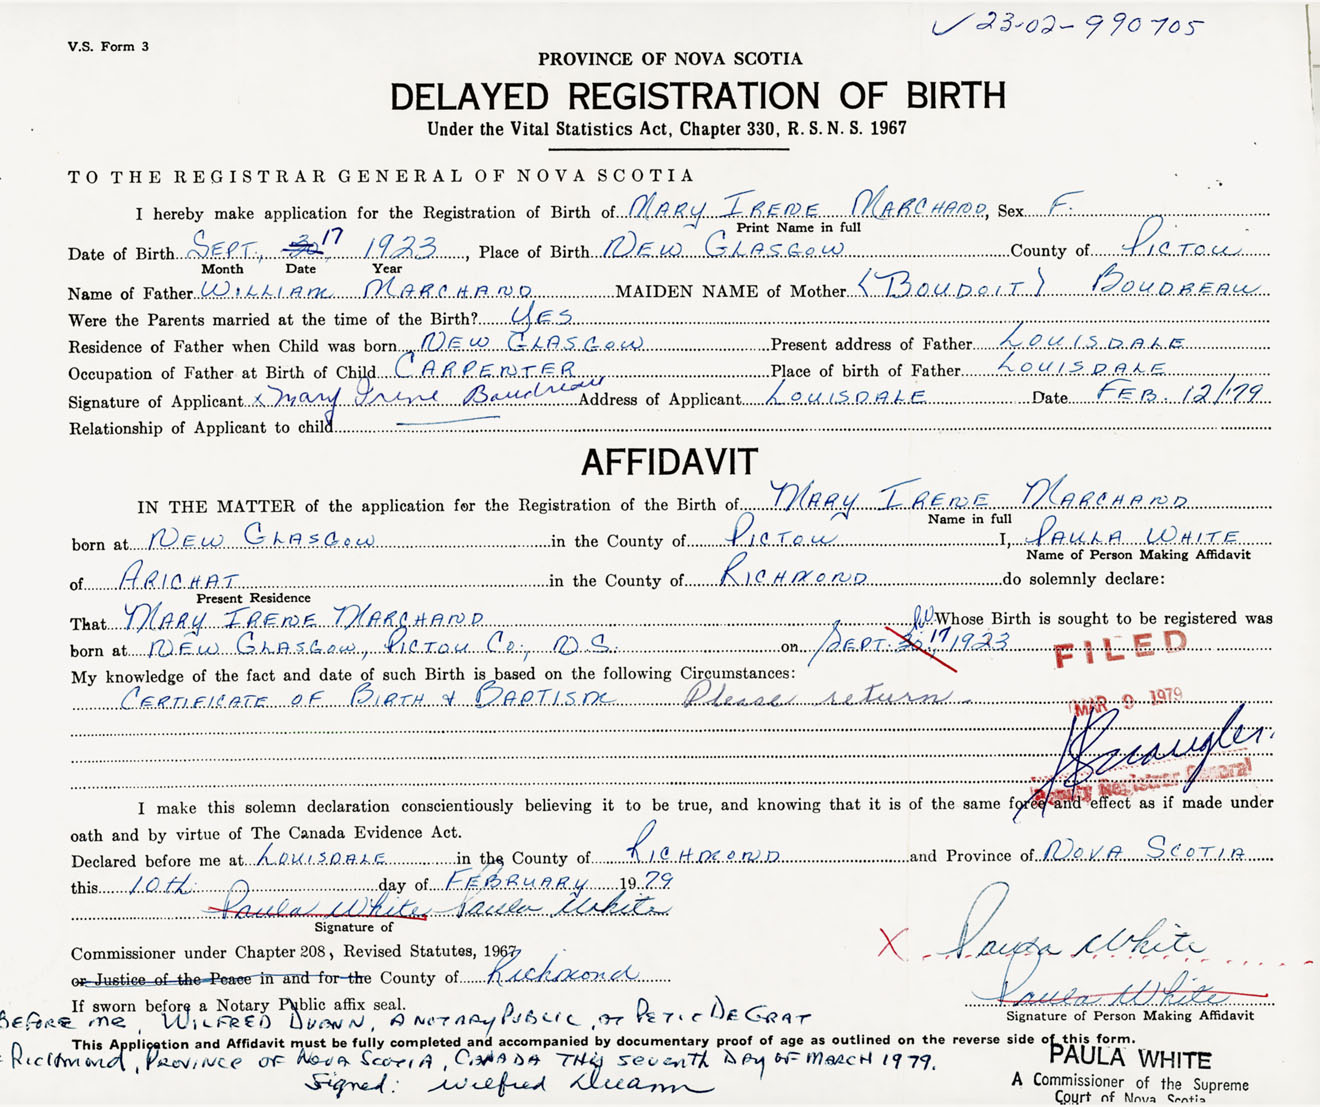 ✓ 23-02-990705
V.S. Form 3
PROVINCE OF NOVA SCOTIA
DELAYED REGISTRATION OF BIRTH
Under the Vital Statistics Act, Chapter 330, R.S.N.S. 1967
TO THE REGISTRAR GENERAL OF NOVA SCOTIA
I hereby make application for the Registration of Birth of MARY IRENE MARCHAND, Sex F.
Print Name in full
Date of Birth SEPT. 30 17 1923, Place of Birth NEW GLASGOW County of PICTOU
Month Date Year
Name of Father WILLIAM MARCHAND MAIDEN NAME of Mother (BOUDOIT) BOUDREAU
Were the Parents married at the time of the Birth? YES
Residence of Father when Child was born NEW GLASGOW Present address of Father LOUISDALE
Occupation of Father at Birth of Child CARPENTER Place of birth of Father LOUISDALE
Signature of Applicant x Mary Irene Boudreau Address of Applicant LOUISDALE Date FEB. 12/79
Relationship of Applicant to child
AFFIDAVIT
IN THE MATTER of the application for the Registration of the Birth of MARY IRENE MARCHAND
Name in full
born at NEW GLASGOW in the County of PICTOU I, PAULA WHITE
Name of Person Making Affidavit
of ARICHAT in the County of RICHMOND do solemnly declare:
Present Residence
That MARY IRENE MARCHAND Whose Birth is sought to be registered was
born at NEW GLASGOW, PICTOU CO., N.S. on SEPT. 30, 17 1923
FILED
My knowledge of the fact and date of such Birth is based on the following Circumstances:
CERTIFICATE OF BIRTH & BAPTISM Please return.
MAR 9 1979
Deputy Registrar General
I make this solemn declaration conscientiously believing it to be true, and knowing that it is of the same force and effect as if made under
oath and by virtue of The Canada Evidence Act.
Declared before me at LOUISDALE in the County of RICHMOND and Province of NOVA SCOTIA
this 10th day of FEBRUARY 1979
Paula White Paula White
Signature of
Commissioner under Chapter 208, Revised Statutes, 1967
or Justice of the Peace in and for the County of Richmond
X Paula White
Paula White
Signature of Person Making Affidavit
If sworn before a Notary Public affix seal.
BEFORE ME, WILFRED DUANN, A NOTARY PUBLIC, AT PETIT DE GRAT
This Application and Affidavit must be fully completed and accompanied by documentary proof of age as outlined on the reverse side of this form.
RICHMOND, PROVINCE OF NOVA SCOTIA, CANADA THIS SEVENTH DAY OF MARCH 1979.
Signed: Wilfred
PAULA WHITE
A Commissioner of the Supreme
Court of Nova Scotia